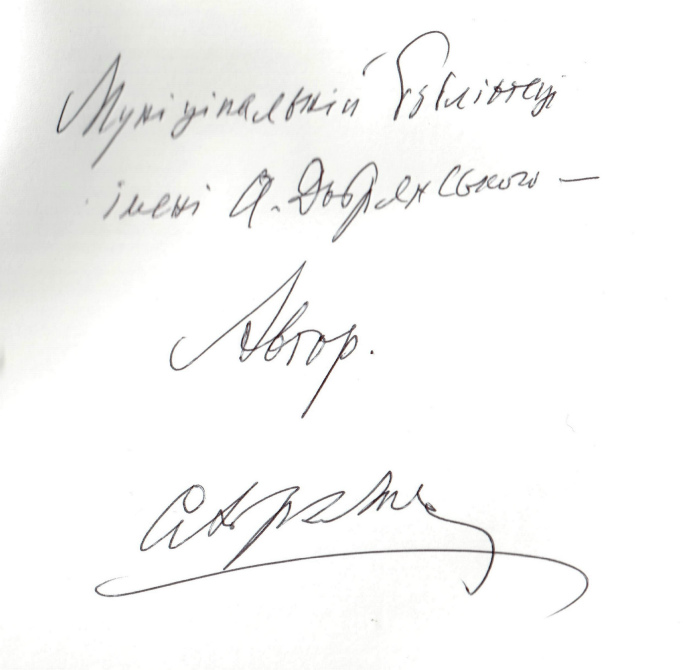 Муніціпальній бібліотеці
імені А. Добрянського —
Автор.